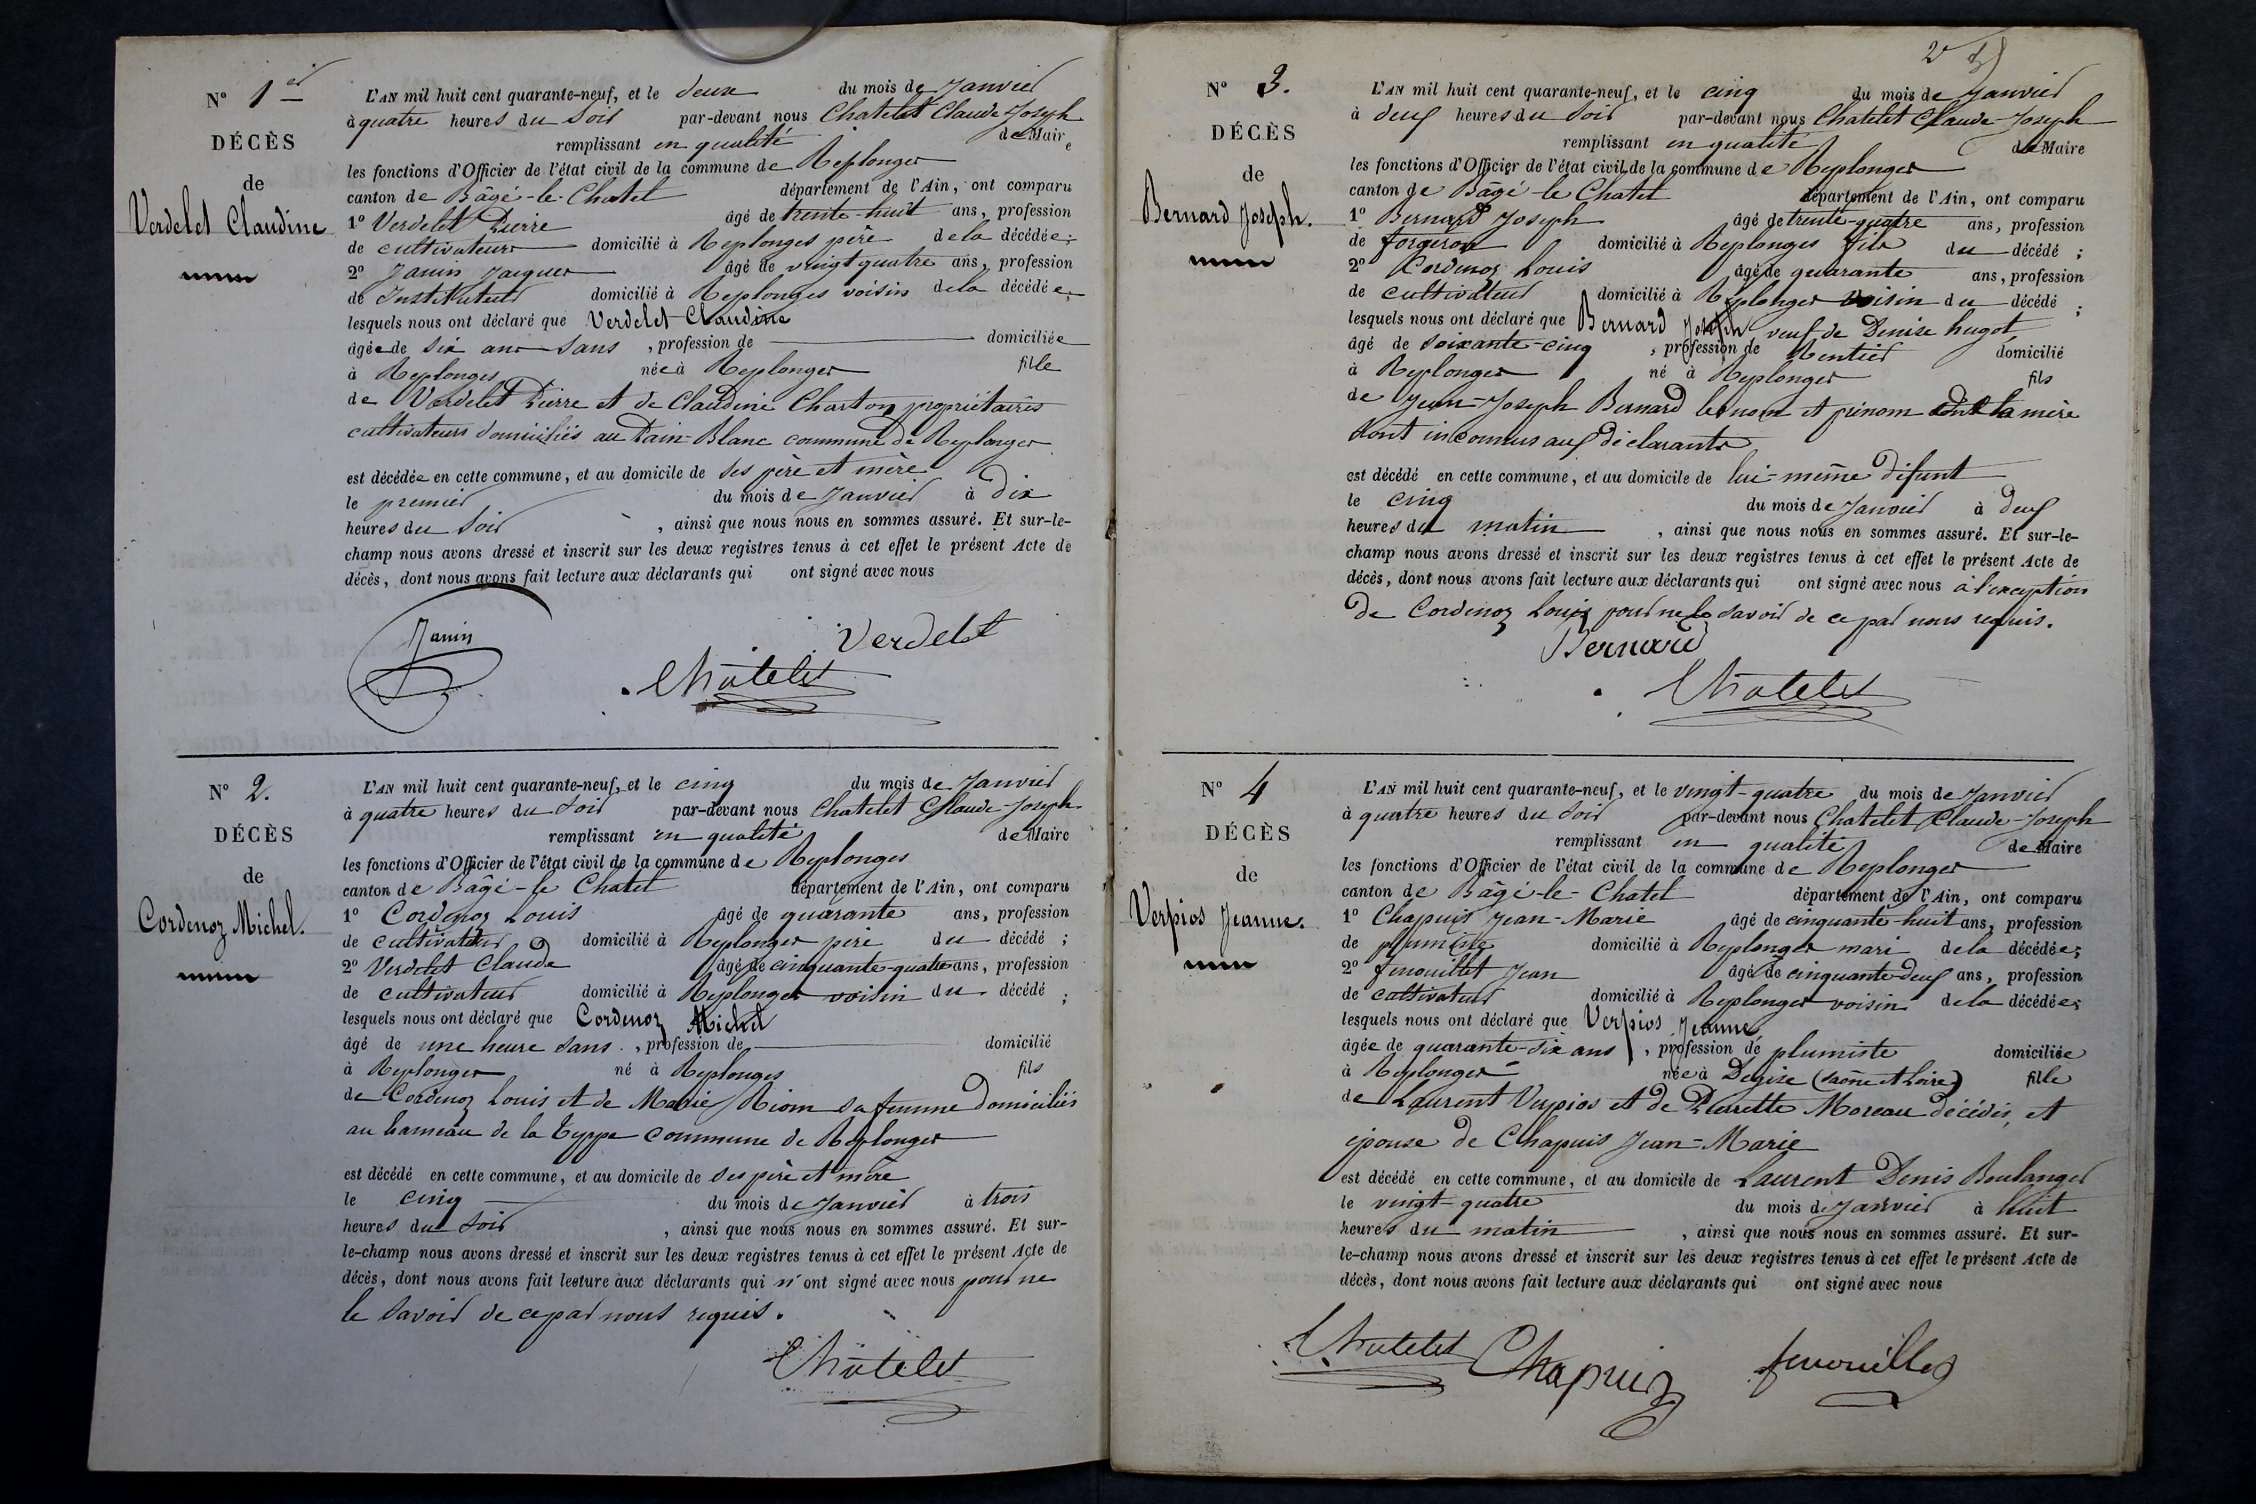 N° 1er
DÉCÈS
de
Verdelet Claudine
L'AN mil huit cent quarante-neuf, et le deux du mois de Janvier
à quatre heures du soir par-devant nous Chatelet Claude Joseph
remplissant en qualité de Maire
les fonctions d'Officier de l'état civil de la commune de Replonges
canton de Bâgé-le-Chatel département de l'Ain, ont comparu
1° Verdelet Pierre âgé de trente-huit ans, profession
de cultivateur domicilié à Replonges père de la décédée;
2° Janin Jacques âgé de vingt quatre ans, profession
de Instituteur domicilié à Replonges voisin de la décédée;
lesquels nous ont déclaré que Verdelet Claudine
âgée de six ans sans, profession de domiciliée
à Replonges née à Replonges fille
de Verdelet Pierre et de Claudine Charton propriétaires
cultivateurs domiciliés au Pain-Blanc commune de Replonges
est décédée en cette commune, et au domicile de ses père et mère
le premier du mois de Janvier à dix
heures du soir, ainsi que nous nous en sommes assuré. Et sur-le-
champ nous avons dressé et inscrit sur les deux registres tenus à cet effet le présent Acte de
décès, dont nous avons fait lecture aux déclarants qui ont signé avec nous
Janin
Verdelet
Châtelet
N° 2.
DÉCÈS
de
Cordenoz Michel.
L'AN mil huit cent quarante-neuf, et le cinq du mois de Janvier
à quatre heures du soir par-devant nous Chatelet Claude-Joseph
remplissant en qualité de Maire
les fonctions d'Officier de l'état civil de la commune de Replonges
canton de Bâgé-le Chatel département de l'Ain, ont comparu
1° Cordenoz Louis âgé de quarante ans, profession
de cultivateur domicilié à Replonges père du décédé;
2° Verdelet Claude âgé de cinquante-quatre ans, profession
de cultivateur domicilié à Replonges voisin du décédé;
lesquels nous ont déclaré que Cordenoz Michel
âgé de une heure sans, profession de domicilié
à Replonges né à Replonges fils
de Cordenoz Louis et de Marie Riom sa femme domiciliés
au hameau de la Teppe commune de Replonges
est décédé en cette commune, et au domicile de ses père et mère
le cinq du mois de Janvier à trois
heures du soir, ainsi que nous nous en sommes assuré. Et sur-
le-champ nous avons dressé et inscrit sur les deux registres tenus à cet effet le présent Acte de
décès, dont nous avons fait lecture aux déclarants qui n'ont signé avec nous pour ne
le savoir de ce par nous requis.
Châtelet
2
N° 3.
DÉCÈS
de
Bernard Joseph.
L'AN mil huit cent quarante-neuf, et le cinq du mois de Janvier
à deux heures du soir par-devant nous Chatelet Claude-Joseph
remplissant en qualité de Maire
les fonctions d'Officier de l'état civil de la commune de Replonges
canton de Bâgé-le Chatel département de l'Ain, ont comparu
1° Bernard Joseph âgé de trente-quatre ans, profession
de forgeron domicilié à Replonges fils du décédé;
2° Cordenoz Louis âgé de quarante ans, profession
de cultivateur domicilié à Replonges voisin du décédé;
lesquels nous ont déclaré que Bernard Joseph veuf de Denise hugot
âgé de soixante-cinq, profession de Rentier domicilié
à Replonges né à Replonges fils
de Jean-Joseph Bernard le nom et prénom de la mère
sont inconnus aux déclarants
est décédé en cette commune, et au domicile de lui-même défunt
le cinq du mois de Janvier à deux
heures du matin, ainsi que nous nous en sommes assuré. Et sur-le-
champ nous avons dressé et inscrit sur les deux registres tenus à cet effet le présent Acte de
décès, dont nous avons fait lecture aux déclarants qui ont signé avec nous à l'exception
de Cordenoz Louis pour ne le savoir de ce par nous requis.
Bernard
Châtelet
N° 4
DÉCÈS
de
Verpios Jeanne.
L'AN mil huit cent quarante-neuf, et le vingt-quatre du mois de Janvier
à quatre heures du soir par-devant nous Chatelet Claude-Joseph
remplissant en qualité de Maire
les fonctions d'Officier de l'état civil de la commune de Replonges
canton de Bâgé-le-Chatel département de l'Ain, ont comparu
1° Chapuis Jean-Marie âgé de cinquante-huit ans, profession
de domicilié à Replonges mari de la décédée;
2° fenouillet Jean âgé de cinquante-deux ans, profession
de cultivateur domicilié à Replonges voisin de la décédée;
lesquels nous ont déclaré que Verpios Jeanne
âgée de quarante-six ans, profession de plumiste domiciliée
à Replonges née à Degise (Saône et Loire) fille
de Laurent Verpios et de Pierrette Moreau décédés, et
épouse de Chapuis Jean-Marie
est décédé en cette commune, et au domicile de Laurent Denis Boulanger
le vingt-quatre du mois de Janvier à huit
heures du matin, ainsi que nous nous en sommes assuré. Et sur-
le-champ nous avons dressé et inscrit sur les deux registres tenus à cet effet le présent Acte de
décès, dont nous avons fait lecture aux déclarants qui ont signé avec nous
Châtelet Chapuis fenouillet